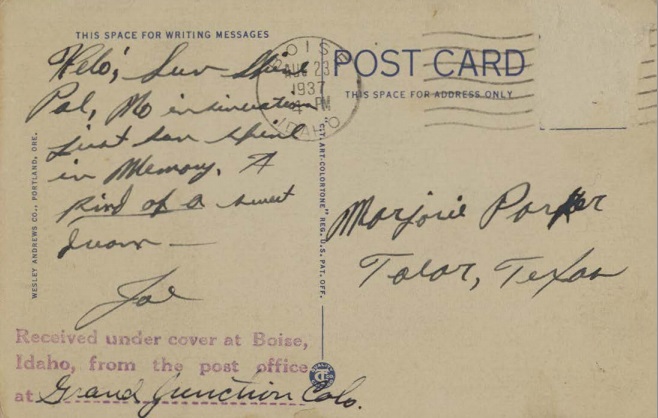 THIS SPACE FOR WRITING MESSAGES
POST CARD
THIS SPACE FOR ADDRESS ONLY
BOISE
AUG 23
1937
4 PM
IDAHO
Pal, No insinuation
just
in Memory. A
kind of a sweet
Joe
Marjorie Parker
Tolar, Texas
WESLEY ANDREWS CO., PORTLAND, ORE.
"C.T. ART-COLORTONE" REG. U.S. PAT. OFF.
Received under cover at Boise,
Idaho, from the post office
at Grand Junction Colo.